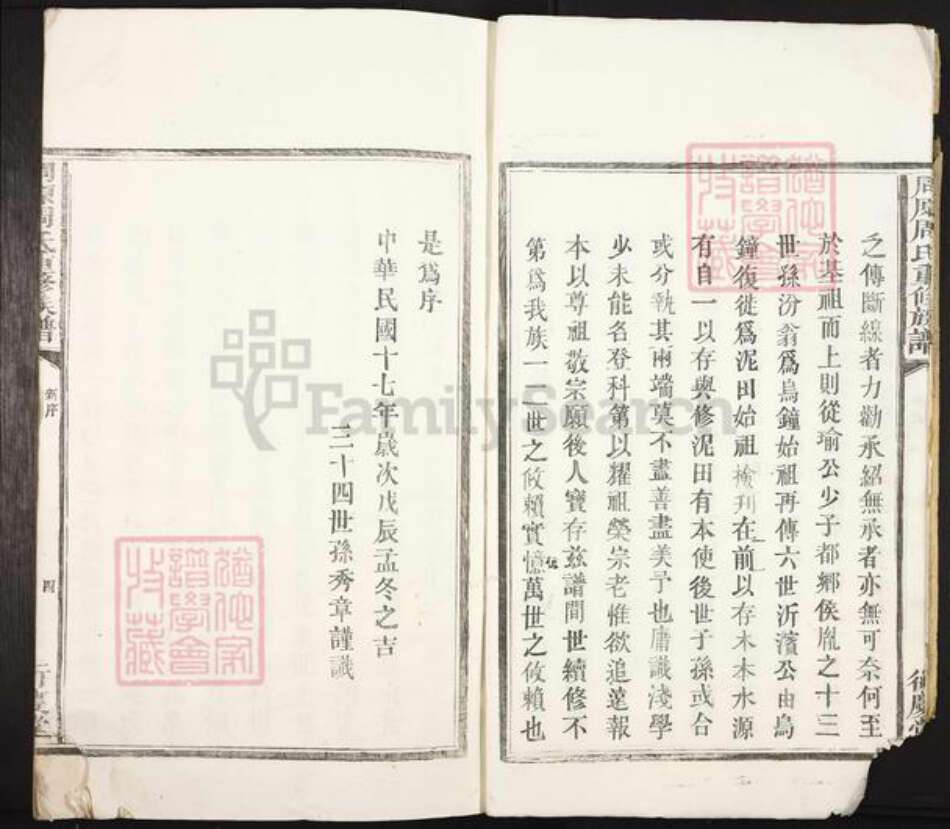 周原周氏重修族譜
之傳斷線者力勸承紹無承者亦無可奈何至
於基祖而上則從瑜公少子都鄉侯胤之十三
世孫汾翁爲烏鐘始祖再傳六世沂濱公由烏
鐘復徙爲泥田始祖檢刋在前以存木本水源
有自一以存與修泥田有本使後世子孫或合
或分執其兩端莫不盡善盡美予也庸識淺學
少未能名登科第以耀祖榮宗老惟欲追遠報
本以尊祖敬宗願後人寶存茲譜間世續修不
第爲我族一二世之攸賴實億萬世之攸賴也
是爲序
中華民國十七年歲次戊辰孟冬之吉
三十四世孫秀章謹識
周原周氏重修族譜
新序
四
猶他家譜學會收藏
猶他家譜學會收藏
FamilySearch